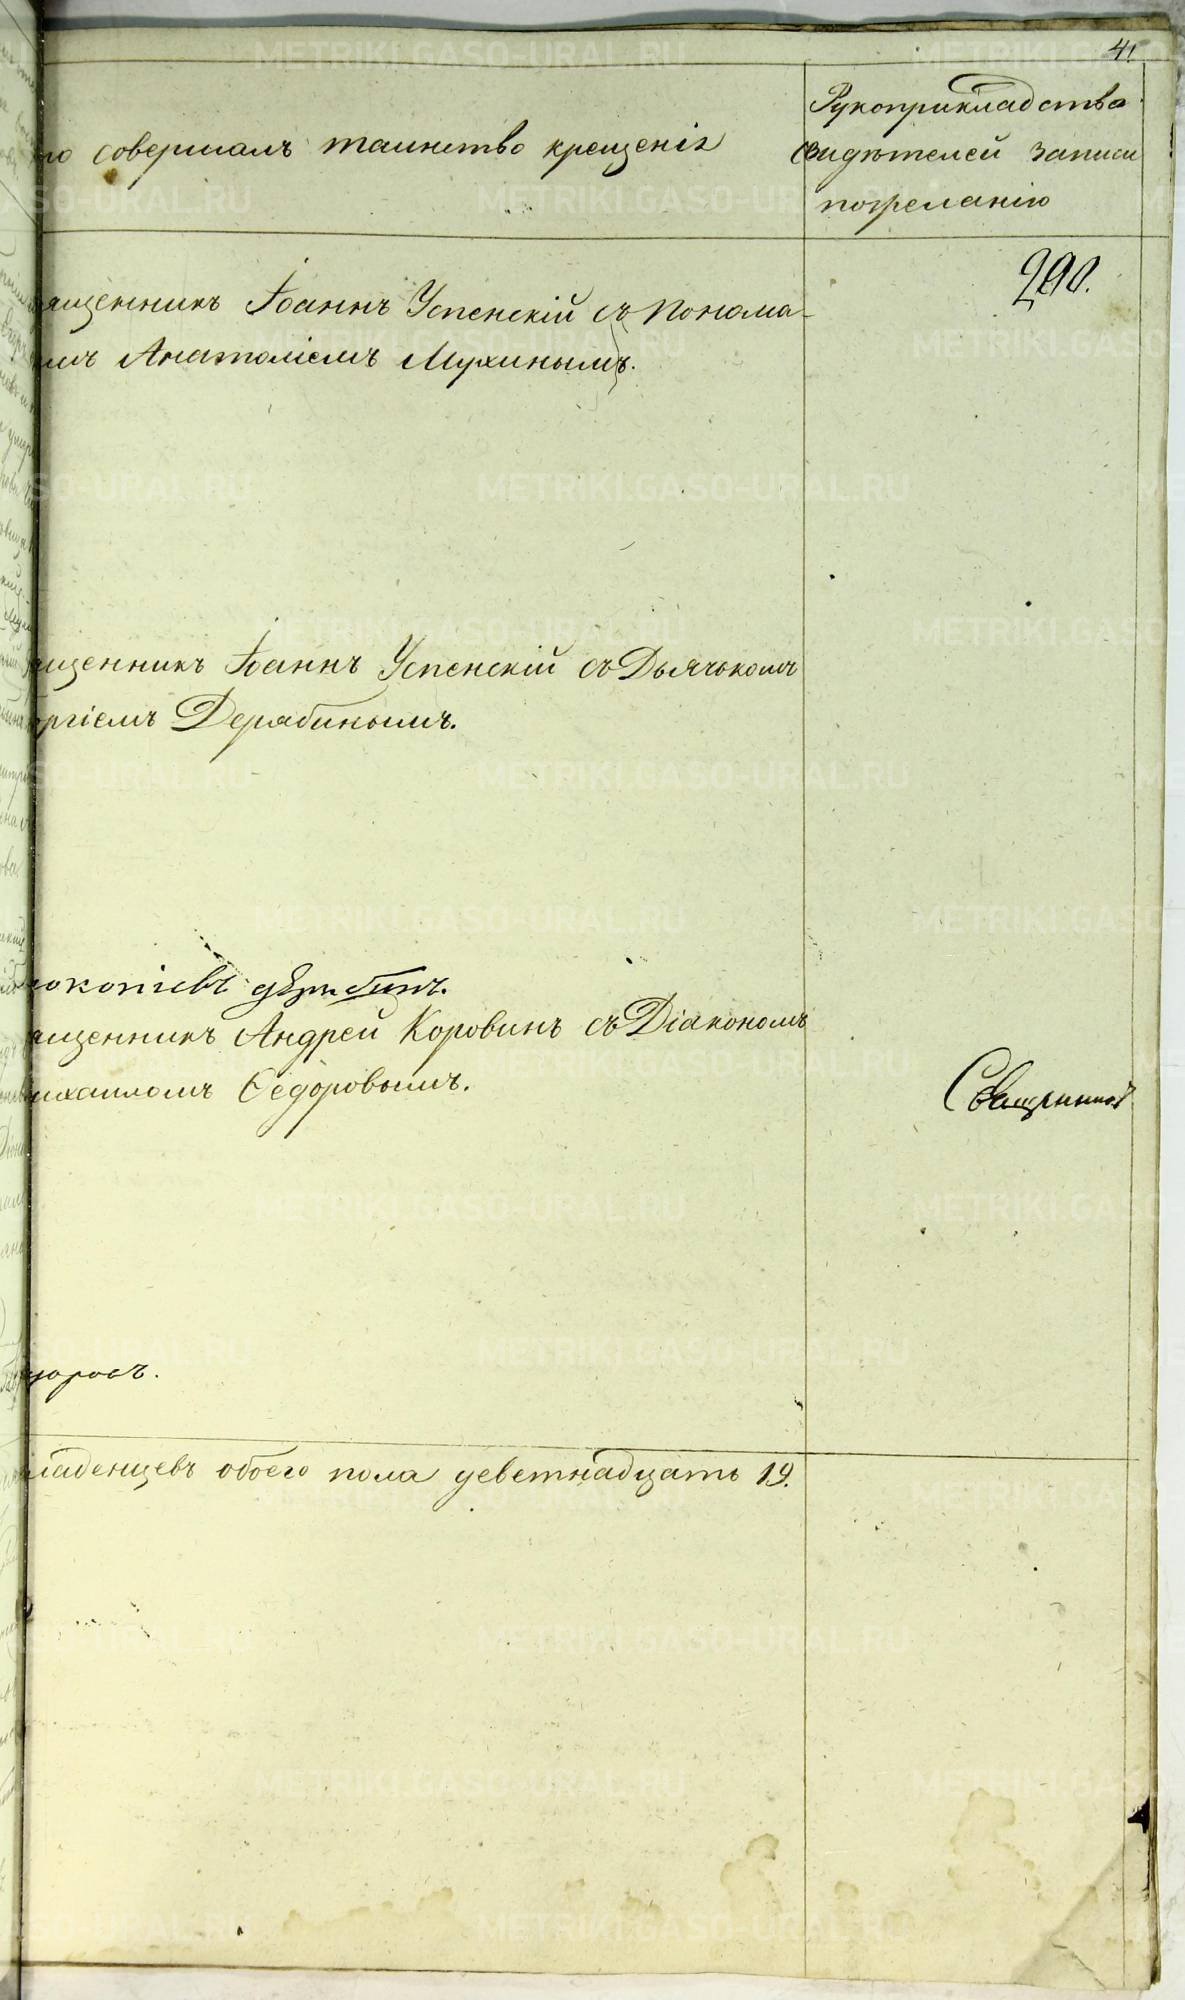 41
то совершалъ таинство крещенія
Рукоприкладства
свидѣтелей записи
по желанію
290.
ященникъ Іоаннъ Успенскій съ Понома-
мъ Анатоліемъ Мухинымъ.
ященникъ Іоаннъ Успенскій съ Дьячькомъ
оргіемъ Дерябинымъ.
рокопіевъ
ященникъ Андрей Коровинъ съ Діакономъ
михаиломъ Ѳедоровымъ.
Священникъ
ладенцевъ обоего пола деветнадцать 19.
METRIKI.GASO-URAL.RU